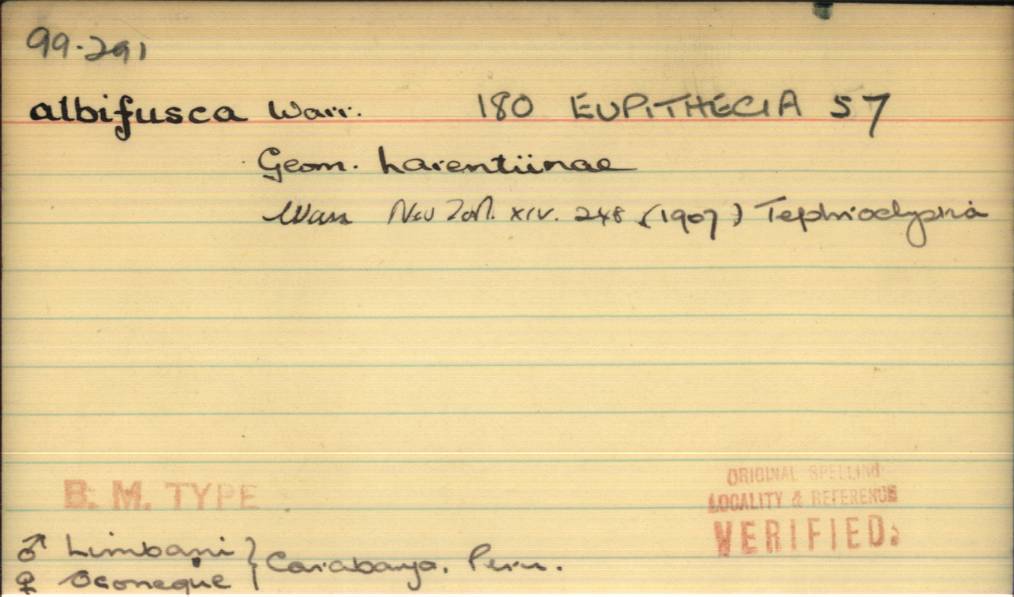 99.291
albifusca Warr. 180 EUPITHECIA 57
Geom. Larentiinae
Warr Nov Zool. XIV. 248 (1907) Tephroclystia
B. M. TYPE
ORIGINAL SPELLING
LOCALITY & REFERENCE
VERIFIED
♂ Limbani } Carabaya, Peru.
♀ Oconeque